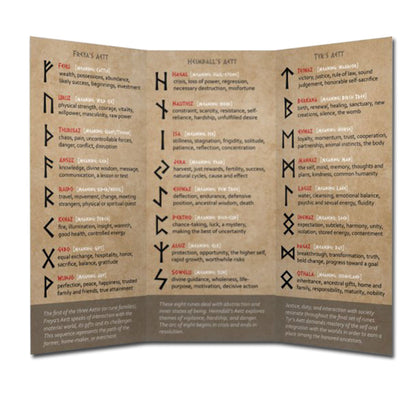 Freya's Aett
ᚠ Fehu
wealth, possessions, abundance,
likely success, beginnings, investment
ᚢ Uruz
physical strength, courage, vitality,
willpower, masculinity, raw power
ᚦ Thurisaz
chaos, pain, uncontrollable forces,
danger, conflict, disruption
ᚨ Ansuz
knowledge, divine wisdom, message,
communication, a lesson or test
ᚱ Raido
travel, movement, change, meeting
strangers, physical or spiritual quest
ᚲ Kenaz
fire, illumination, insight, warmth,
good health, controlled energy
ᚷ Gebo
equal exchange, hospitality, honor,
sacrifice, balance, gratitude
ᚹ Wunjo
perfection, peace, happiness, trusted
family and friends, true attainment
The first of the three Aettir (or rune families),
Freya's Aett speaks of interaction with the
material world, its gifts and its challenges.
This sequence represents the path of the
farmer, home-maker, or merchant.
Heimdall's Aett
ᚺ Hagal
crisis, loss of power, regression,
necessary destruction, misfortune
ᚾ Nauthiz
constraint, scarcity, resistance, self-
reliance, hardship, unfulfilled desire
ᛁ Isa
stillness, stagnation, frigidity, solitude,
patience, reflection, concentration
ᛃ Jera
harvest, just rewards, fertility, success,
natural cycles, cause and effect
ᛇ Eihwaz
deflection, endurance, defensive
position, ancestral wisdom, death
ᛈ Pertho
chance-taking, luck, a mystery,
making the best of uncertainty
ᛉ Algiz
protection, opportunity, the higher self,
rapid growth, worthwhile risks
ᛊ Sowelu
divine guidance, wholeness, life-
purpose, motivation, decisive action
These eight runes deal with abstraction and
inner states of being. Heimdall's Aett explores
themes of vigilance, hardship, and danger.
The arc of eight begins in crisis and ends in
resolution.
Tyr's Aett
ᛏ
victory, justice, rule of law, sound
judgement, honorable self-sacrifice
ᛒ Berkana
birth, renewal, healing, sanctuary, new
creations, silence, the womb
ᛖ
loyalty, momentum, trust, cooperation,
partnership, animal instincts, the body
ᛗ Mannaz
the self, mind, memory, thoughts and
plans, kindred, common humanity
ᛚ
water, cleansing, emotional balance,
psychic energy, sexuality, fluidity
ᛜ
expectation, subtlety, harmony, unity,
vision, instant power, containment
ᛞ
breakthrough, transformation, truth,
bold change, progress toward a goal
ᛟ Othala
inheritance, ancestral gifts, home and
family, responsibility, maturity, nobility
Justice, duty, and interaction with society
resonate throughout the final set of runes.
Tyr's Aett demands mastery of the self and
integration with the worlds in order to earn a
place among the honored ancestors.